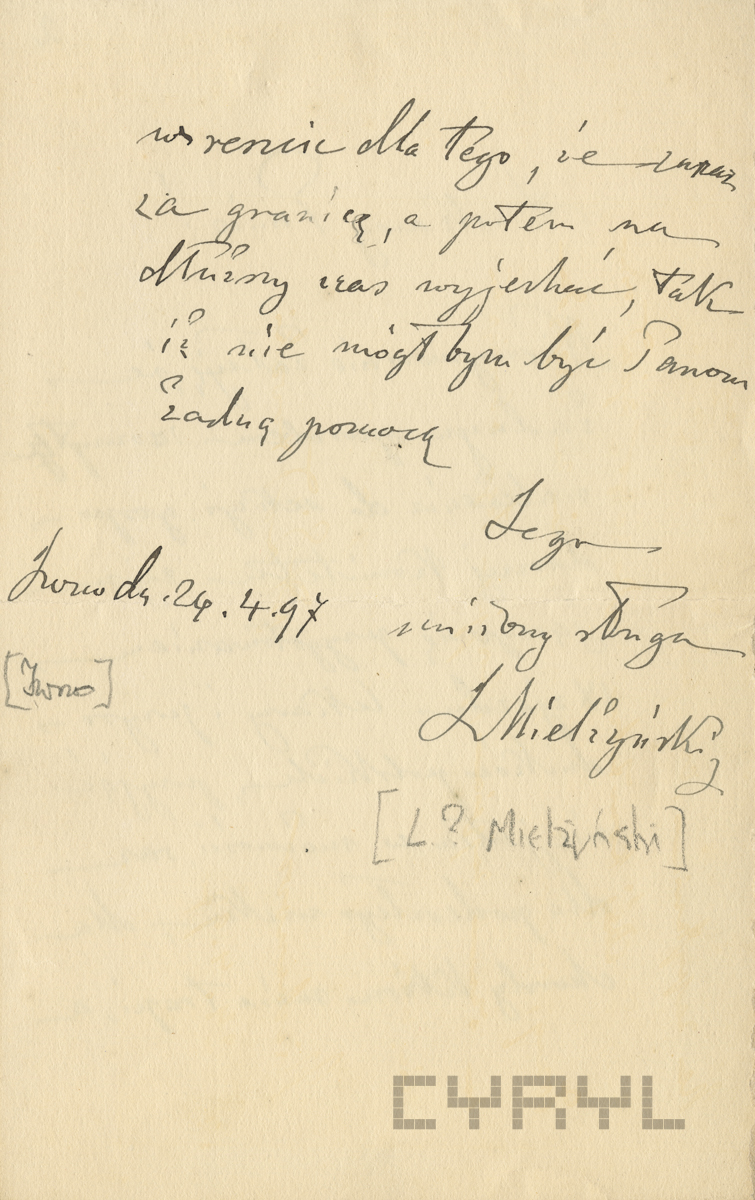 wreszcie dla tego, że zaraz
za granicę, a potem na
dłuższy czas wyjechać, tak
iż nie mógłbym być Panom
żadną pomocą
Jego
Iwno dn. 24.4.97
uniżony sługa
L Mielżyński
[Iwno]
[L? Mielżyński]
CYRYL